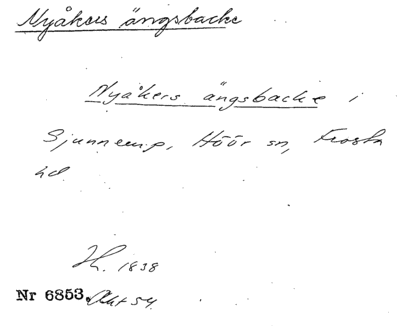 Nyåkers ängsbacke
Nyåkers ängsbacke i
Sjunnerup, Höör sn, Frosta
hd
H. 1838
Nr 6853. Akt 54.